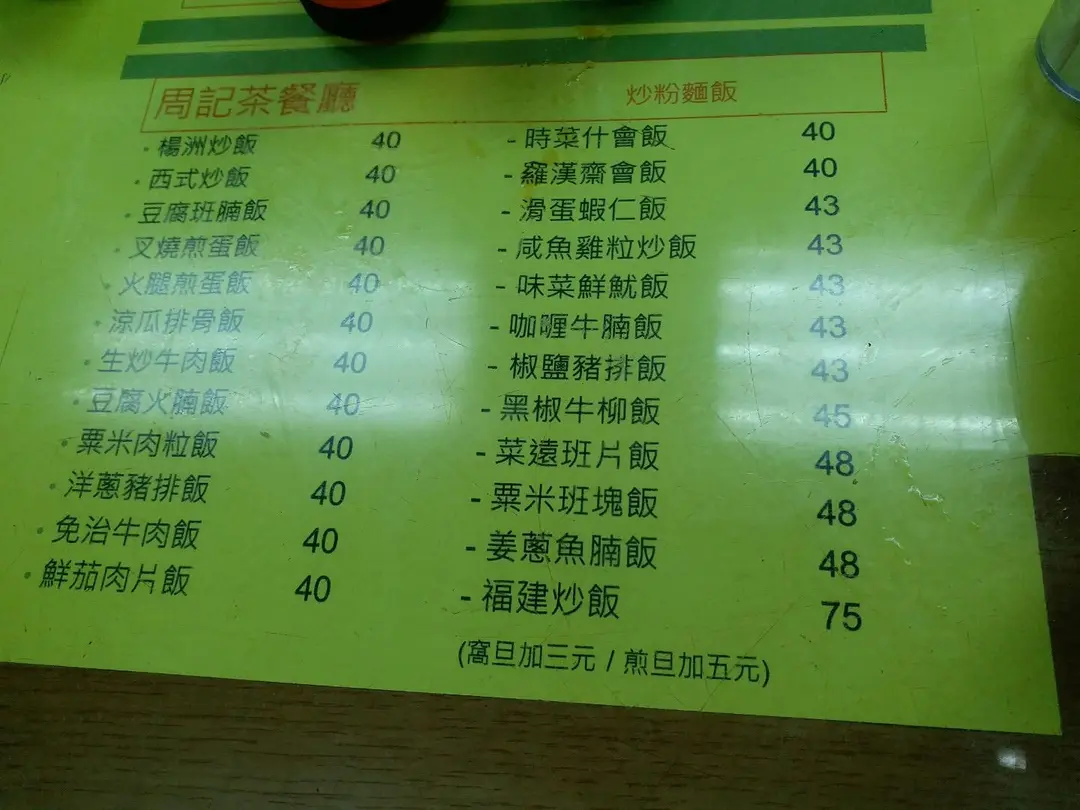 周記茶餐廳 炒粉麵飯
· 楊洲炒飯 40
· 西式炒飯 40
· 豆腐班腩飯 40
· 叉燒煎蛋飯 40
· 火腿煎蛋飯 40
· 涼瓜排骨飯 40
· 生炒牛肉飯 40
· 豆腐火腩飯 40
· 粟米肉粒飯 40
· 洋蔥豬排飯 40
· 免治牛肉飯 40
· 鮮茄肉片飯 40
- 時菜什會飯 40
- 羅漢齋會飯 40
- 滑蛋蝦仁飯 43
- 咸魚雞粒炒飯 43
- 味菜鮮魷飯 43
- 咖喱牛腩飯 43
- 椒鹽豬排飯 43
- 黑椒牛柳飯 45
- 菜遠班片飯 48
- 粟米班塊飯 48
- 姜蔥魚腩飯 48
- 福建炒飯 75
(窩旦加三元 / 煎旦加五元)